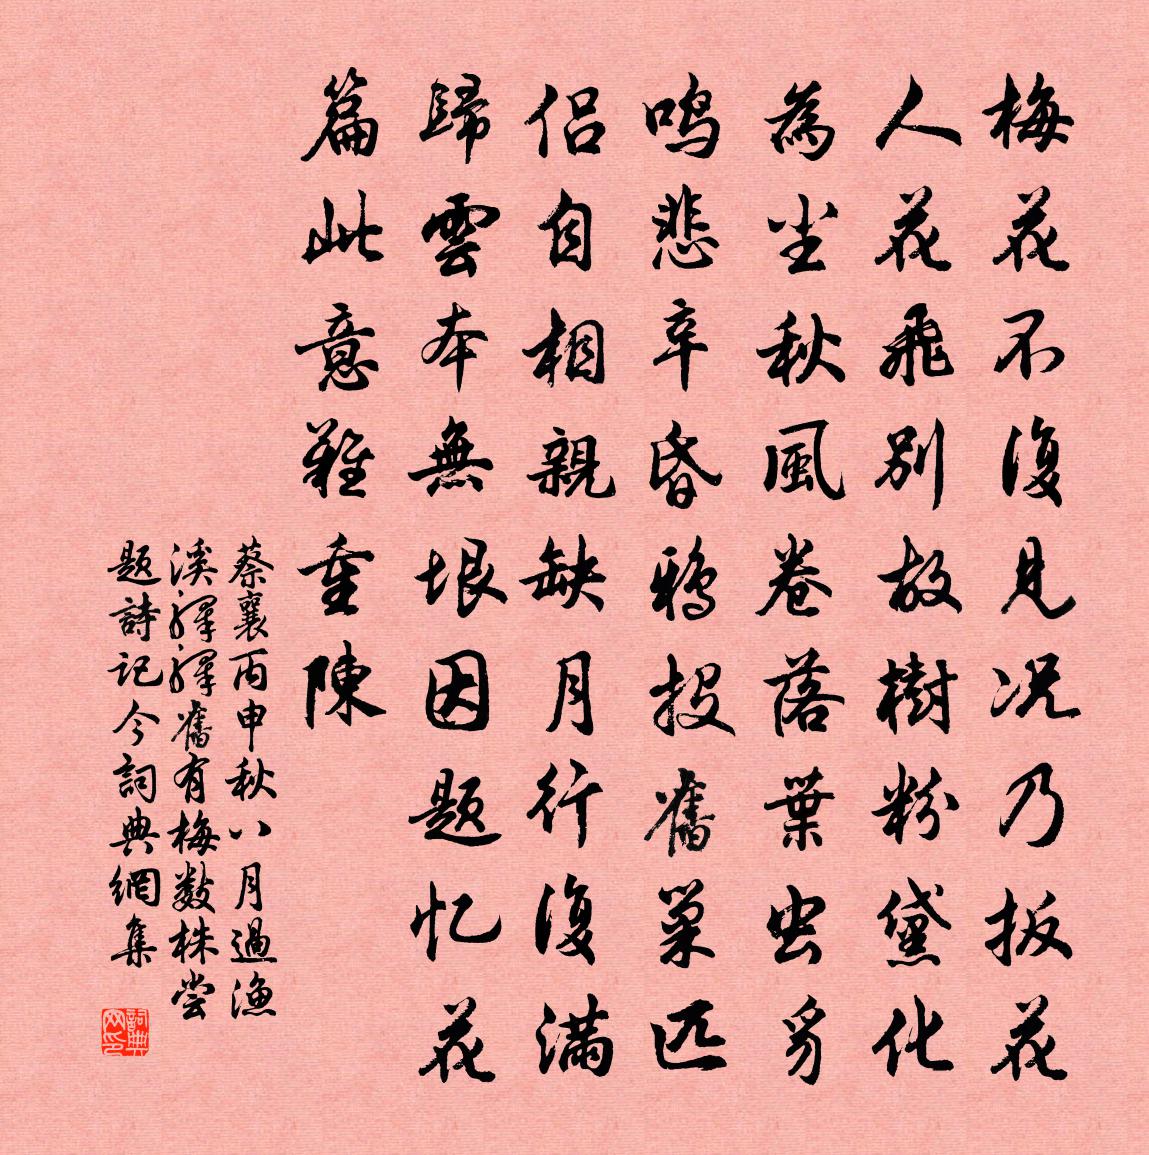 梅花不復見况乃扳花
人花飛別故樹粉黛化
為尘秋風卷落葉虫豸
鸣悲辛昏鴉投舊巢匹
侣自相親缺月行復滿
歸雲本無垠因题忆花
篇此意難重陳
蔡襄丙申秋八月過渔
溪驛驛舊有梅數株尝
题詩記今詞典網集
詞典网印